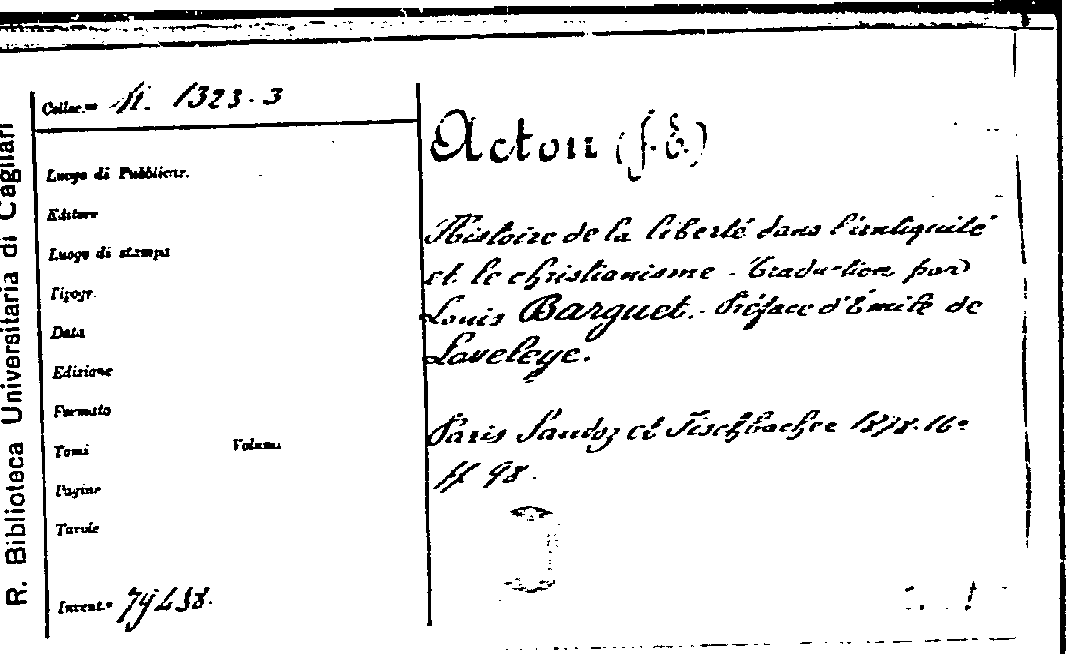 R. Biblioteca Universitaria di Cagliari
Colloc.ne 1323.3
Luogo di Pubblicaz.
Editore
Luogo di stampa
Tipogr.
Data
Edizione
Formato
Tomi Volumi
Pagine
Tavole
Invent.º
Acton (J. E.)
Histoire de la liberté dans l'antiquité
et le christianisme. Traduction par
Louis Barguet. Préface d'Emile de
Laveleye.
Paris Sandoz et Fischbacher 1878. 16º
98.